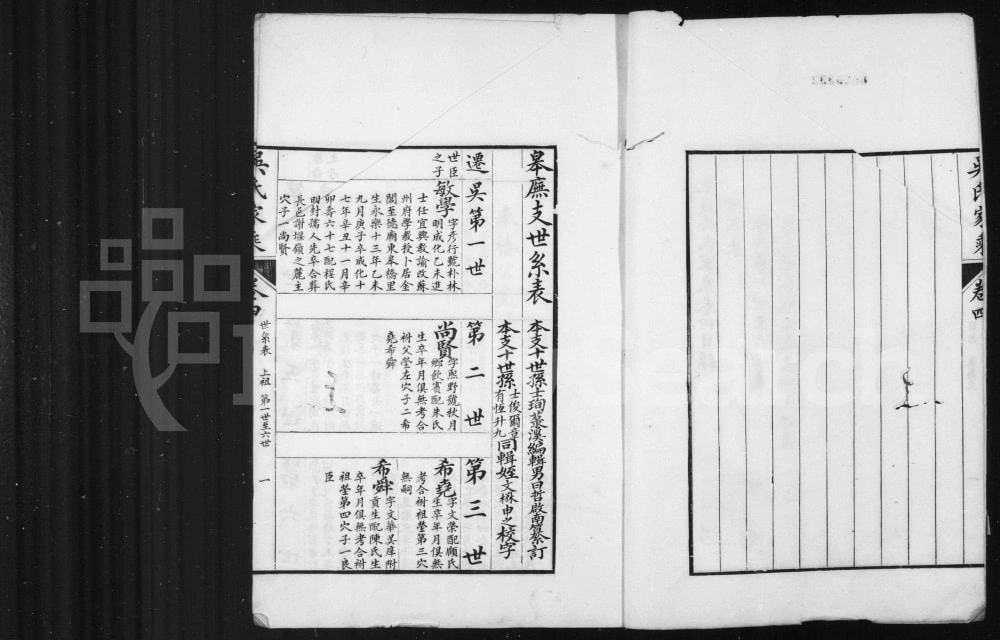 吳氏家乘
卷四
皋廡支世系表
本支十世孫士珣菉溪編輯男曰哲啟南纂訂
本支十世孫
士俊爾章
有恆升九
同輯姪文楙申之校字
遷吳第一世
世臣
之子
敏學
字彥行號朴林
明成化乙未進
士任宜興教諭改蘇
州府學教授卜居金
閶至德廟東皋橋里
生永樂十三年乙未
九月庚子卒成化十
七年辛丑十一月辛
卯壽六十七配程氏
明封孺人先卒合葬
長邑謝堰嶺之麓主
穴子一尚賢
第二世
尚賢
字熙野號秋月
鄉飲賓配朱氏
生卒年月俱無考合
祔父塋左穴子二希
堯希舜
第三世
希堯
字文榮配顧氏
生卒年月俱無
考合祔祖塋第三穴
無嗣
希舜
字文華吳庠附
貢生配陳氏生
卒年月俱無考合祔
祖塋第四穴子一良
臣
吳氏家乘
卷四
世系表 上祖 第一世至六世
一